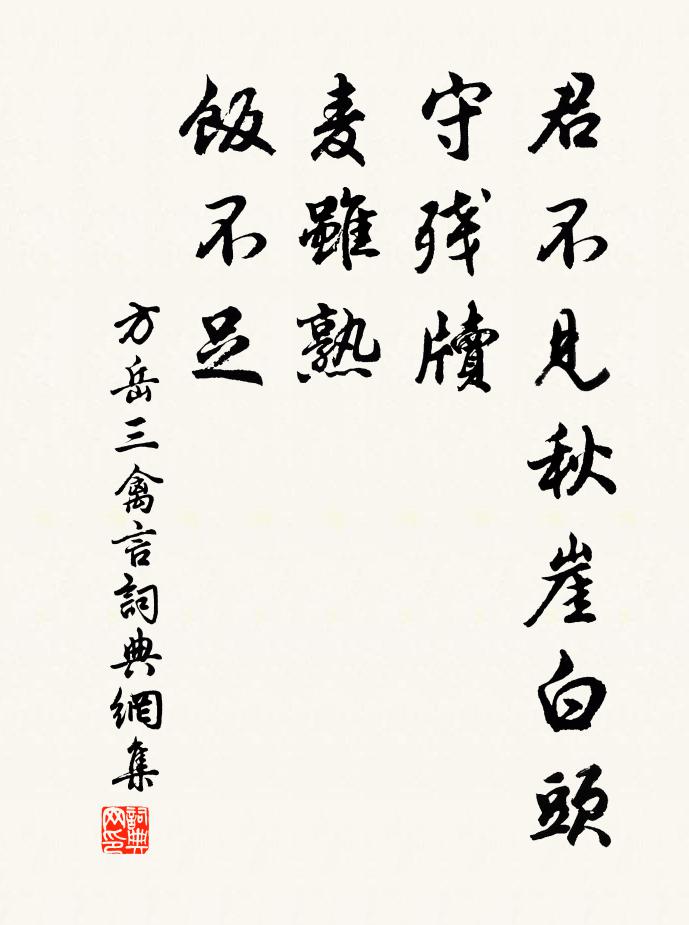 君不見秋崖白頭
守残牘
麦雖熟
飯不足
方岳三禽言詞典網集
詞典网印